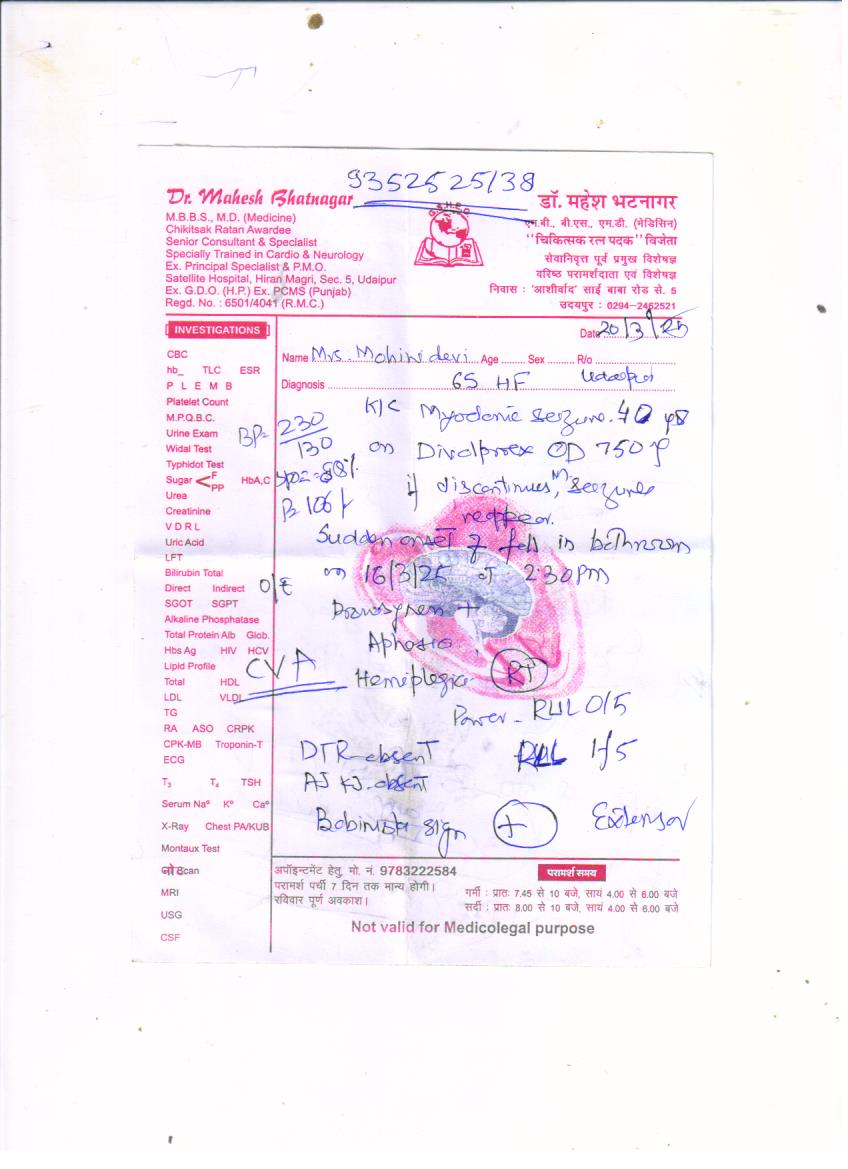 9352525138
Dr. Mahesh Bhatnagar
M.B.B.S., M.D. (Medicine)
Chikitsak Ratan Awardee
Senior Consultant & Specialist
Specially Trained in Cardio & Neurology
Ex. Principal Specialist & P.M.O.
Satellite Hospital, Hiran Magri, Sec. 5, Udaipur
Ex. G.D.O. (H.P.) Ex. PCMS (Punjab)
Regd. No. : 6501/4041 (R.M.C.)
डॉ. महेश भटनागर
एम.बी., बी.एस., एम.डी. (मेडिसिन)
"चिकित्सक रत्न पदक" विजेता
सेवानिवृत्त पूर्व प्रमुख विशेषज्ञ
वरिष्ठ परामर्शदाता एवं विशेषज्ञ
निवास : 'आशीर्वाद' साईं बाबा रोड से. 5
उदयपुर : 0294-2462521
INVESTIGATIONS
CBC
hb_ TLC ESR
P L E M B
Platelet Count
M.P.Q.B.C.
Urine Exam
Widal Test
Typhidot Test
Sugar < F PP HbA,C
Urea
Creatinine
V D R L
Uric Acid
LFT
Bilirubin Total
Direct Indirect
SGOT SGPT
Alkaline Phosphatase
Total Protein Alb Glob.
Hbs Ag HIV HCV
Lipid Profile
Total HDL
LDL VLDL
TG
RA ASO CRPK
CPK-MB Troponin-T
ECG
T₃ T₄ TSH
Serum Na° K° Ca°
X-Ray Chest PA/KUB
Montaux Test
MRI
USG
CSF
Date 20/3/25
Name Mrs. Mohini devi Age ........ Sex ......... R/o
Diagnosis 65 HF Udaipur
K/C Myoclonic seizure. 40 yrs
BP= 230/130
on Divalproex OD 750
SpO2=88%
if discontinues, seizures
reappear.
P 106
Sudden onset of fell in bathroom
on 16/3/25 at 2:30PM
O/E
+
Aphasia
CVA
Hemiplegia RT
Power - RUL 0/5
DTR - absent RLL 1/5
AJ KJ - absent
Babinski sign + Extensor
अपॉइन्टमेंट हेतु, मो. नं. 9783222584
परामर्श पर्ची 7 दिन तक मान्य होगी।
रविवार पूर्ण अवकाश।
परामर्श समय
गर्मी : प्रातः 7.45 से 10 बजे, सायं 4.00 से 6.00 बजे
सर्दी : प्रातः 8.00 से 10 बजे, सायं 4.00 से 6.00 बजे
Not valid for Medicolegal purpose